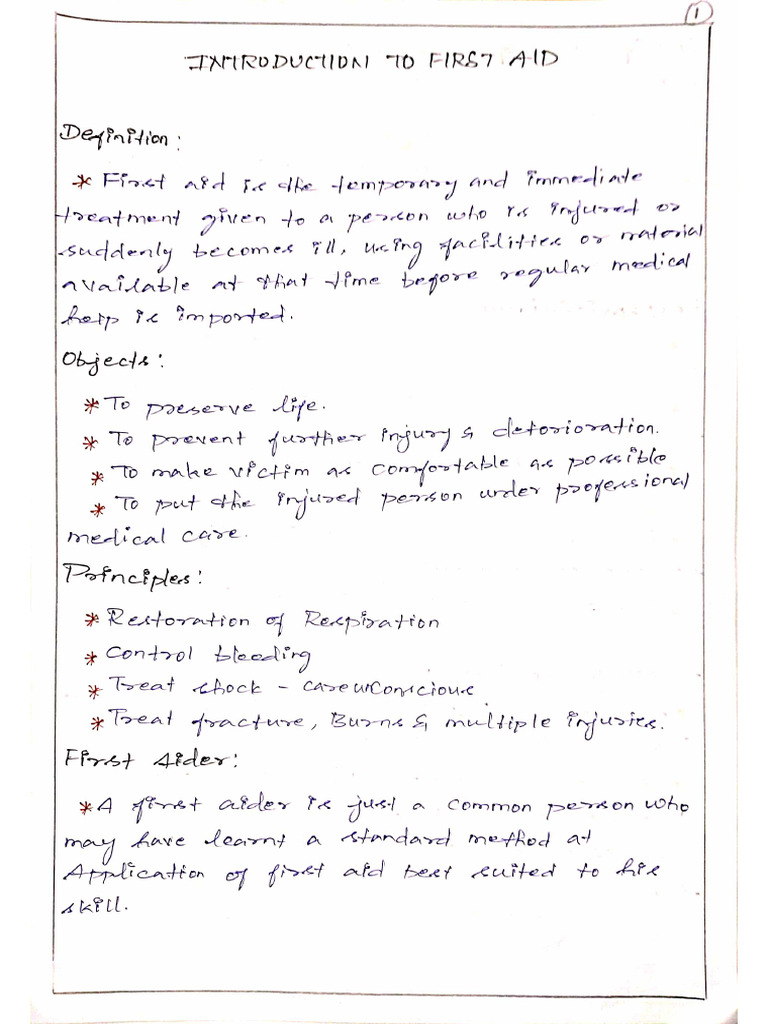 1
INTRODUCTION TO FIRST AID
Definition:
* First aid is the temporary and immediate
treatment given to a person who is injured or
suddenly becomes ill, using facilities or material
available at that time before regular medical
help is imported.
Objects:
* To preserve life.
* To prevent further injury & detorioration.
* To make victim as comfortable as possible
* To put the injured person under professional
medical care.
Principles:
* Restoration of Respiration
* Control bleeding
* Treat shock - care unconscious
* Treat fracture, Burns & multiple injuries.
First Aider:
* A first aider is just a common person who
may have learnt a standard method at
Application of first aid best suited to his
skill.